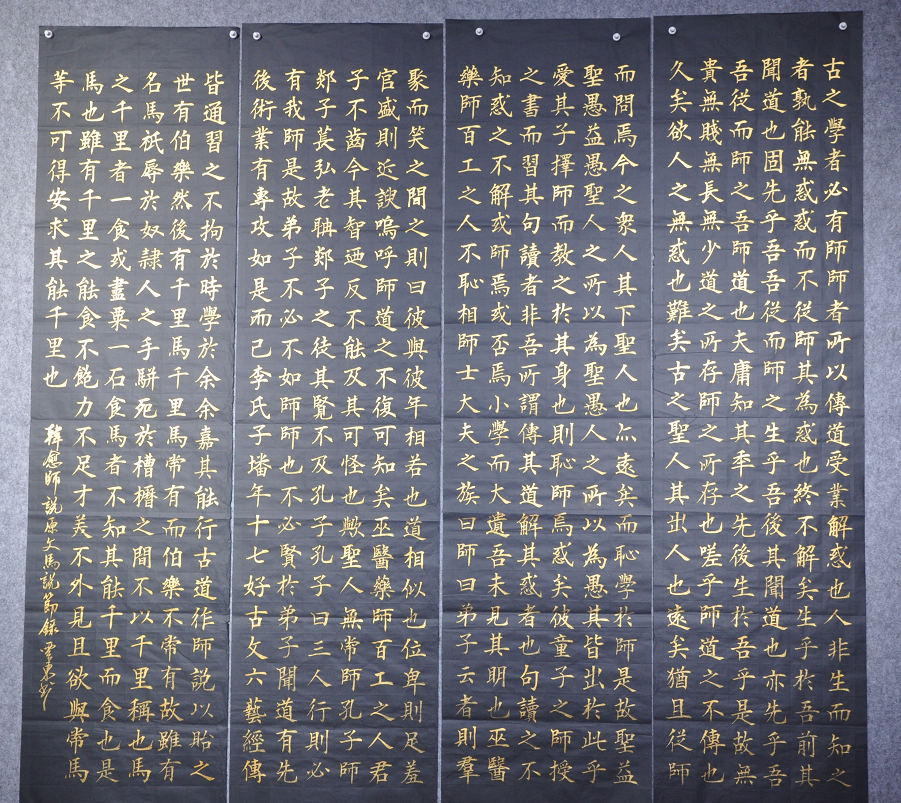 古之學者必有師師者所以傳道受業解惑也人非生而知之
者孰能無惑惑而不從師其為惑也終不解矣生乎於吾前其
聞道也固先乎吾吾從而師之生乎吾後其聞道也亦先乎吾
吾從而師之吾師道也夫庸知其年之先後生於吾乎是故無
貴無賤無長無少道之所存師之所存也嗟乎師道之不傳也
久矣欲人之無惑也難矣古之聖人其出人也遠矣猶且從師
而問焉今之衆人其下聖人也亦遠矣而恥學於師是故聖益
聖愚益愚聖人之所以為聖愚人之所以為愚其皆出於此乎
愛其子擇師而教之於其身也則恥師焉惑矣彼童子之師授
之書而習其句讀者非吾所謂傳其道解其惑者也句讀之不
知惑之不解或師焉或否焉小學而大遺吾未見其明也巫醫
藥師百工之人不恥相師士大夫之族曰師曰弟子云者則羣
聚而笑之間之則曰彼與彼年相若也道相似也位卑則足羞
官盛則近諛嗚呼師道之不復可知矣巫醫藥師百工之人君
子不齒今其智迺反不能及其可怪也歟聖人無常師孔子師
郯子萇弘老聃郯子之徒其賢不及孔子孔子曰三人行則必
有我師是故弟子不必不如師師也不必賢於弟子聞道有先
後術業有專攻如是而已李氏子墦年十七好古文六藝經傳
皆通習之不拘於時學於余余嘉其能行古道作師說以貽之
世有伯樂然後有千里馬千里馬常有而伯樂不常有故雖有
名馬祇辱於奴隸人之手駢死於槽櫪之間不以千里稱也馬
之千里者一食或盡粟一石食馬者不知其能千里而食也是
馬也雖有千里之能食不飽力不足才美不外見且欲與常馬
等不可得安求其能千里也
韓愈師說原文馬說節錄